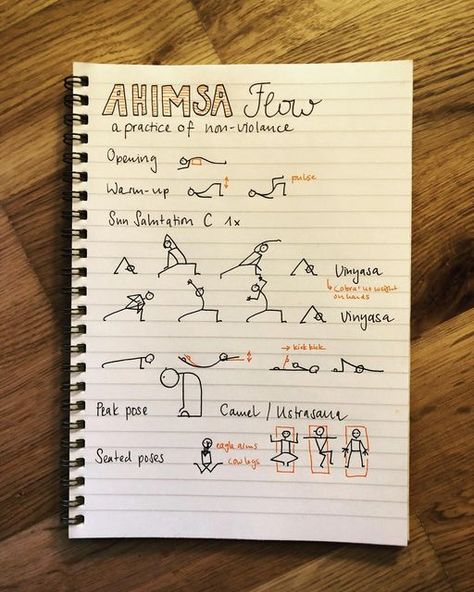 AHIMSA Flow
a practice of non-violance
Opening
Warm-up
pulse
Sun Salutation C 1x
Vinyasa
↳ Cobra: no weight
on hands
Vinyasa
→ kick kick
Peak pose
Camel / Ustrasana
Seated poses
eagle arms
cow legs